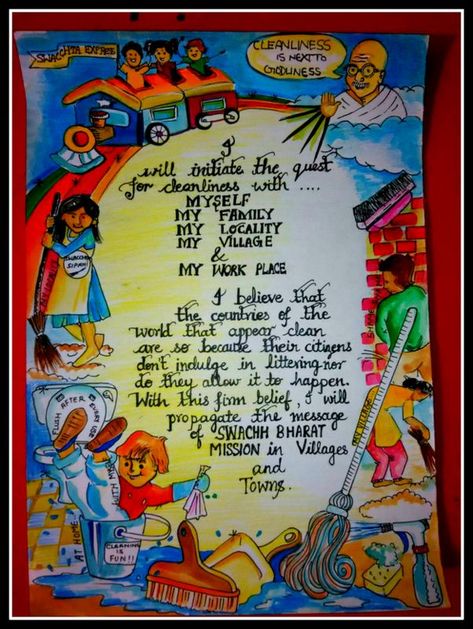 SWACCHTA EXPRESS
CLEANLINESS
IS NEXT TO
GODLINESS
I
will initiate the quest
for cleanliness with ....
MYSELF
MY FAMILY
MY LOCALITY
MY VILLAGE
&
MY WORK PLACE
I believe that
the countries of the
world that appear clean
are so because their citizens
don't indulge in littering nor
do they allow it to happen.
With this firm belief, i will
propagate the message
of SWACHH BHARAT
MISSION in Villages
and
Towns.
SWACCH
SIPAHI
FLUSH AFTER EVERY USE
AT HOME
CLEANING
IS
FUN!!